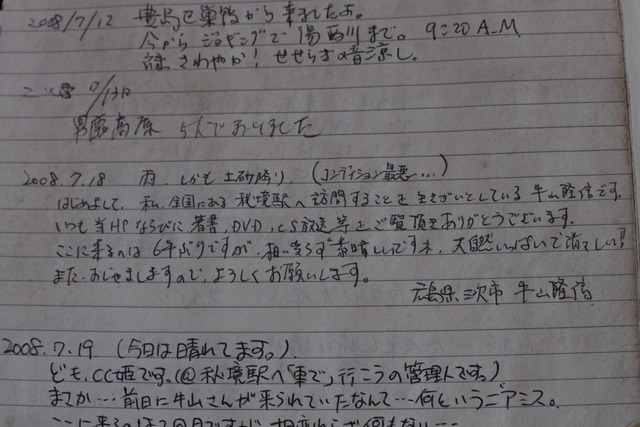 2008/7/12 豊島区巣鴨から来ましたよ。
今からジョギングで湯西川まで。 9:20 A.M
緑さわやか! せせらぎの音涼し。
7/13日
男鹿高原 5人でおりました
2008.7.18 雨、しかも土砂降り、(コンディション最悪…)
はじめまして、私、全国にある秘境駅へ訪問することを生きがいとしている牛山隆信です。
いつも当HPならびに著書、DVD、CS放送等をご覧頂きありがとうございます。
ここに来るのは6年ぶりですが、相変らず素晴しいですネ。大自然いっぱいで清てしい!
また、おじゃましますので、よろしくお願いします。
広島県三次市 牛山隆信
2008.7.19 (今日は晴れてます。)
ども、CC姫です。(@秋境駅へ「車で」行こうの管理人です。)
まさか…前日に牛山さんが来られていたなんて…何というニアミス。
ここに来るのは2回目ですが、相変わらず何もない…